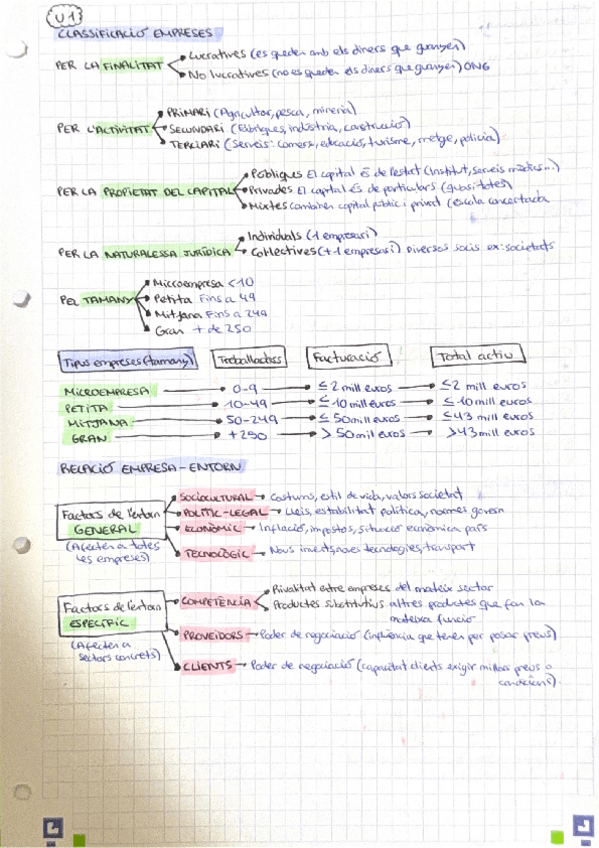 U1
CLASSIFICACIÓ EMPRESES
PER LA FINALITAT
Lucratives (es queden amb els diners que guanyen)
No lucratives (no es queden els diners que guanyen) ONG
PER L'ACTIVITAT
PRIMARI (Agricultor, pesca, mineria)
SECUNDARI (Fàbriques, indústria, construcció)
TERCIARI (Serveis: comerç, educació, turisme, metge, policia)
PER LA PROPIETAT DEL CAPITAL
Públiques El capital és de l'estat (Institut, serveis mèdics...)
Privades El capital és de particulars (quasi totes)
Mixtes combinen capital públic i privat (escola concertada
PER LA NATURALESSA JURÍDICA
Individuals (1 empresari)
Col·lectives (+1 empresari) Diversos socis ex: societats
PEL TAMANY
Microempresa <10
Petita Fins a 49
Mitjana Fins a 249
Gran + de 250
Tipus empreses (tamany) Treballadors Facturació Total actiu
MICROEMPRESA 0-9 ≤2 mill euros ≤2 mill euros
PETITA 10-49 ≤10 mill euros ≤10 mill euros
MITJANA 50-249 ≤50 mill euros ≤43 mill euros
GRAN +250 >50 mil euros >43 mill euros
RELACIÓ EMPRESA-ENTORN
Factors de l'entorn
GENERAL
(Afecten a totes
les empreses)
SOCIOCULTURAL → Costums, estil de vida, valors societat
POLÍTIC-LEGAL → Lleis, estabilitat política, normes govern
ECONÒMIC → Inflació, impostos, situació econòmica país
TECNOLÒGIC → Nous invents, noves tecnologies, transport
Factors de l'entorn
ESPECÍFIC
(Afecten a
sectors concrets)
COMPETÈNCIA
Rivalitat entre empreses del mateix sector
Productes substitutius altres productes que fan la
mateixa funció
PROVEIDORS → Poder de negociació (influència que tenen per posar preus)
CLIENTS → Poder de negociació (capacitat clients exigir millors preus o
condicions).